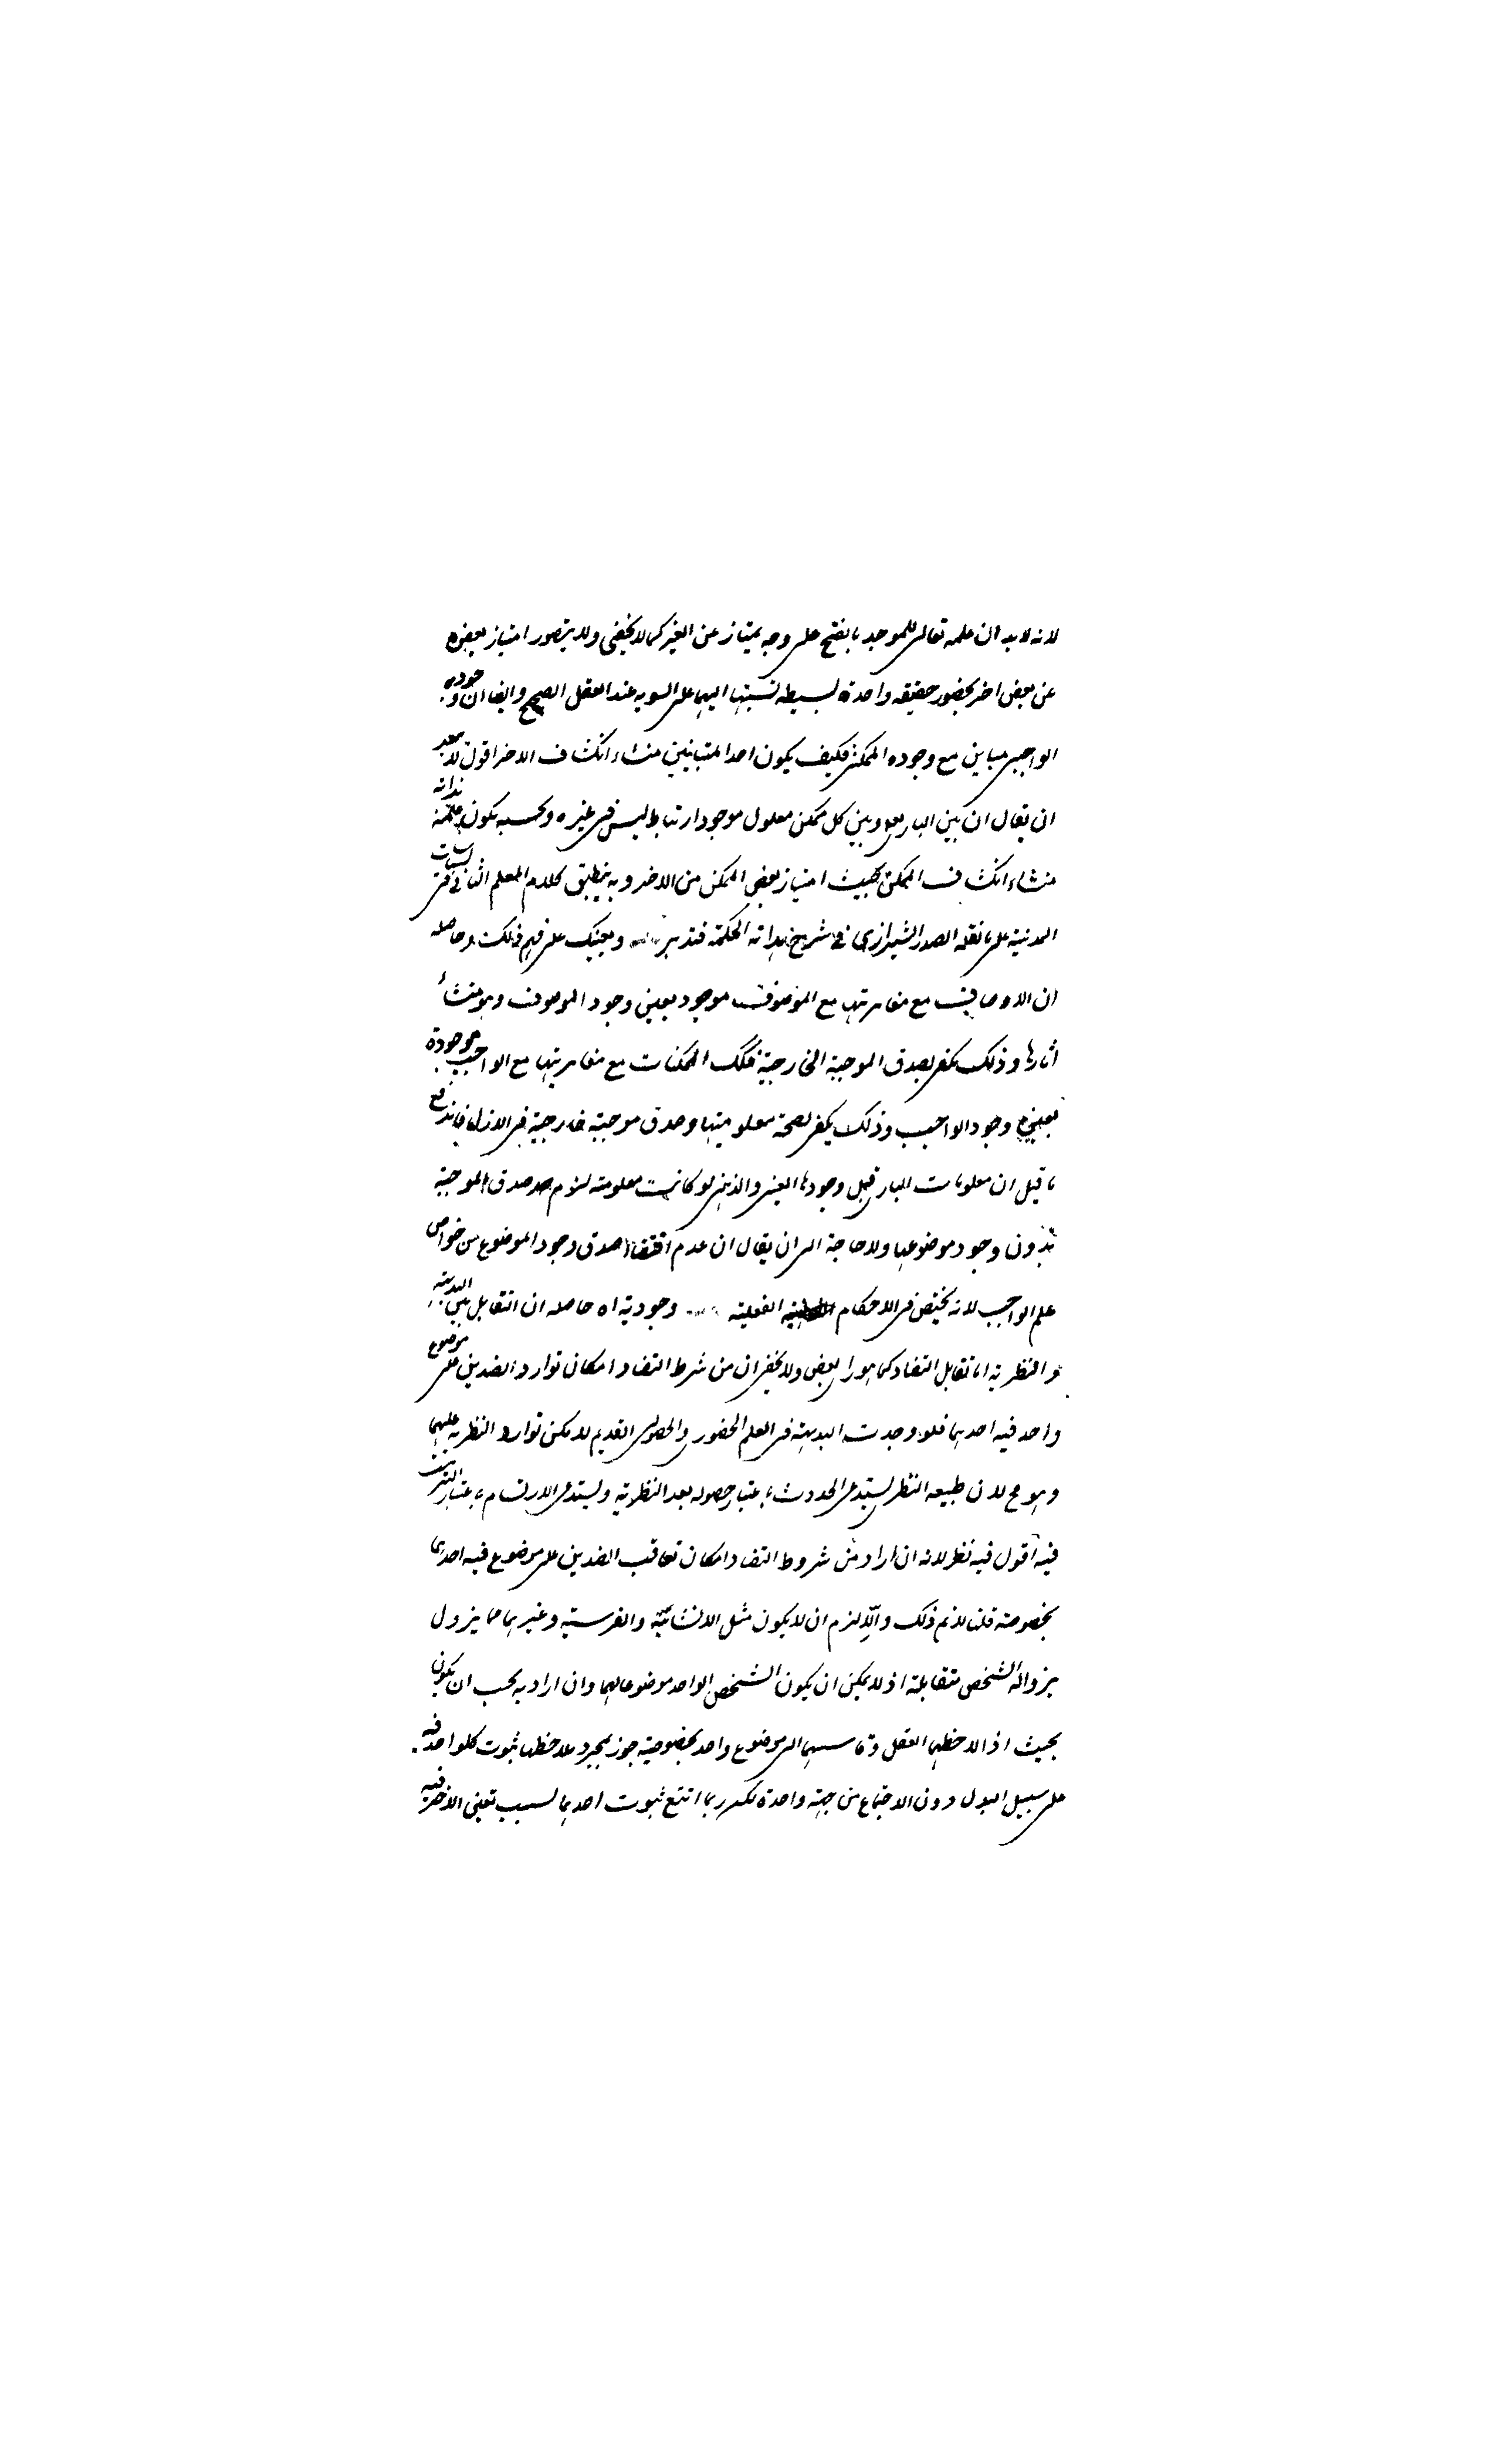 لانه لابد ان علمه تعالى للموجد بالفتح على وجه يمتاز عن الغير كما لا يخفى ولا يتصور امتياز بعضه
عن بعض اخر بحضور حقيقه واحدة بسيطه نسبتها اليهما على السويه عند العقل الصحيح وايضا ان وجوده
الواجبى مباين مع وجوده الممكن فكيف يكون احد المتباينين منشاء انكشاف الاخر اقول لا يبعد
ان يقال ان بين البارى وبين كل ممكن معلول موجود ارتباط ليس فى غيره وبحسبه يكون علمه بذاته
منشاء انكشاف الممكن بحيث امتياز بعض الممكن من الاخر وبه ينطبق كلام المعلم الثانى فى السياسات
المدنية على ما نقله الصدر الشيرازى فى شرح هداية الحكمة فتدبر ويعينك على فهم ذلك وحاصله
ان الاوصاف مع مغايرتها مع الموصوف موجود بعين وجود الموصوف وهو منشأ
آثارها وذلك يكفى لصدق الموجبة الخارجية فكذلك الممكنات مع مغايرتها مع الواجب موجودة
بعين وجود الواجب وذلك يكفى لصحة معلوميتها وصدق موجبة خارجية فى الازل فاندفع
ما قيل ان معلومات البارى قبل وجودها العينى والذهنى لو كانت معلومة لزم صدق الموجبة
بدون وجود موضوعها ولا حاجة الى ان يقال ان عدم اقتضاء صدق وجود الموضوع من خواص
علم الواجب لانه يختص فى الاحكام الفعلية وجودية اه حاصله ان التقابل بين البديهية
والنظرية اما تقابل التضاد كما هو راى البعض ولا يخفى ان من شرط التضاد امكان توارد الضدين على موضوع
واحد فيه احدهما فلو وجدت البديهية فى العلم الحضورى والحصولى القديم لامكن توارد النظرية عليهما
وهو مح لان طبيعة النظر يستدعى الحدوث باعتبار حصوله بعد النظرية ويستدعى الارتسام باعتبار الترتيب
فيه اقول فيه نظر لانه ان اراد من شروط التضاد امكان تعاقب الضدين على موضوع فيه احدهما
بخصوصه قلنا لا نم ذلك والا لزم ان لا يكون مثل الانسانية والفرسية وغيرهما مما يزول
بزواله الشخص متقابلة اذ لا يمكن ان يكون الشخص الواحد موضوعا لهما وان اراد به يجب ان يكون
بحيث اذا لاحظهما العقل وقاسهما الى موضوع واحد بخصوصية جوز بمجرد ملاحظها ثبوت كلواحد فيه
على سبيل البدل دون الاجتماع من جهة واحدة لكن ربما امتنع ثبوت احدهما لسبب تعين الاخر فيه